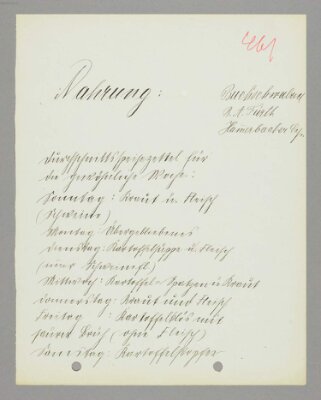 461
Nahrung:
B. A. Fürth
Durchschnittsspeisezettel für
die gewöhnliche Woche:
Sonntag: Kraut u. Fleisch
(Schweine)
Montag: Übergebliebenes
Dienstag: Kartoffelsuppe u. Fleisch
(nur Schweinefl.)
Mittwoch: Kartoffel- Spatzen u. Kraut
Donnerstag: Kraut und Fleisch
Freitag: Kartoffelklös mit
saurer Brüh (ohne Fleisch)
Samstag: Kartoffelstopfer